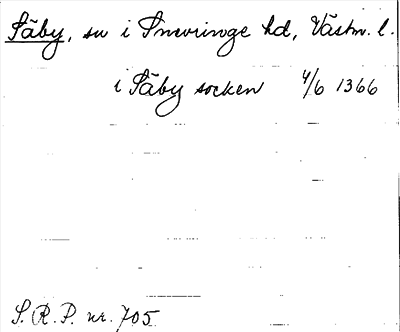 Säby, sn i Snevringe hd, Västm. l.
i Säby socken 4/6 1366
S. R. P. nr. 705